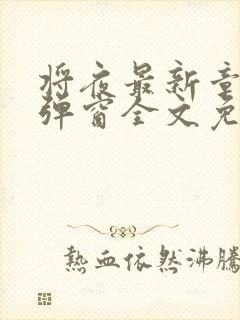 将夜最新章
弹窗全文免
熱血依然沸騰